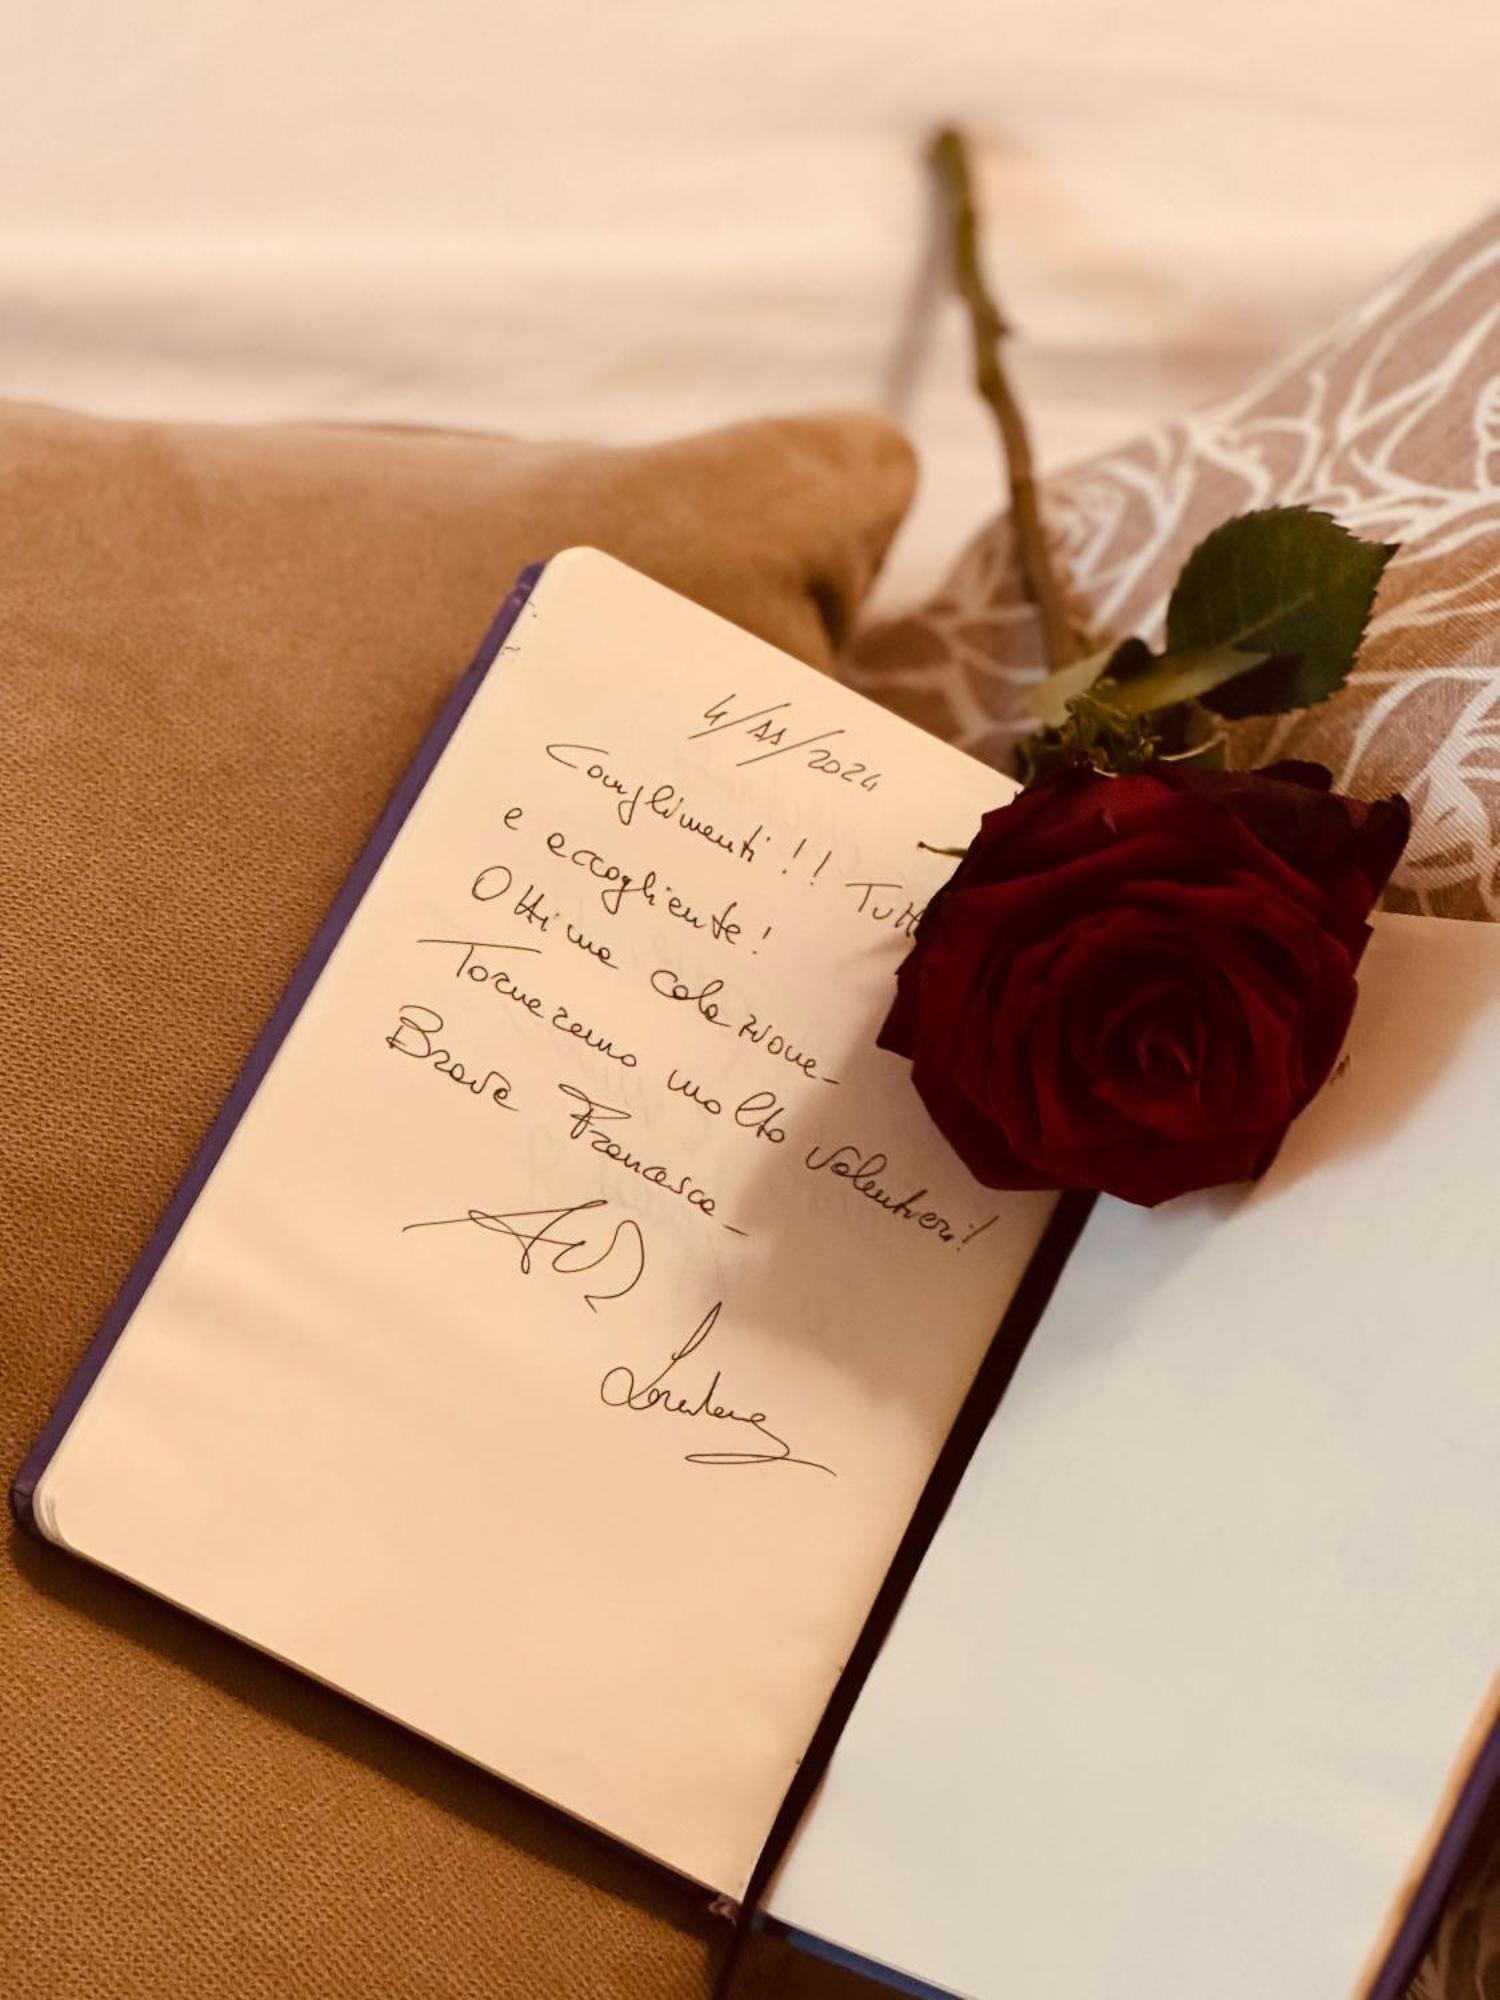 4/11/2024
Complimenti!! Tutt
e accogliente!
Ottima colazione-
Torneremo molto volentieri!
Brava Francesca-